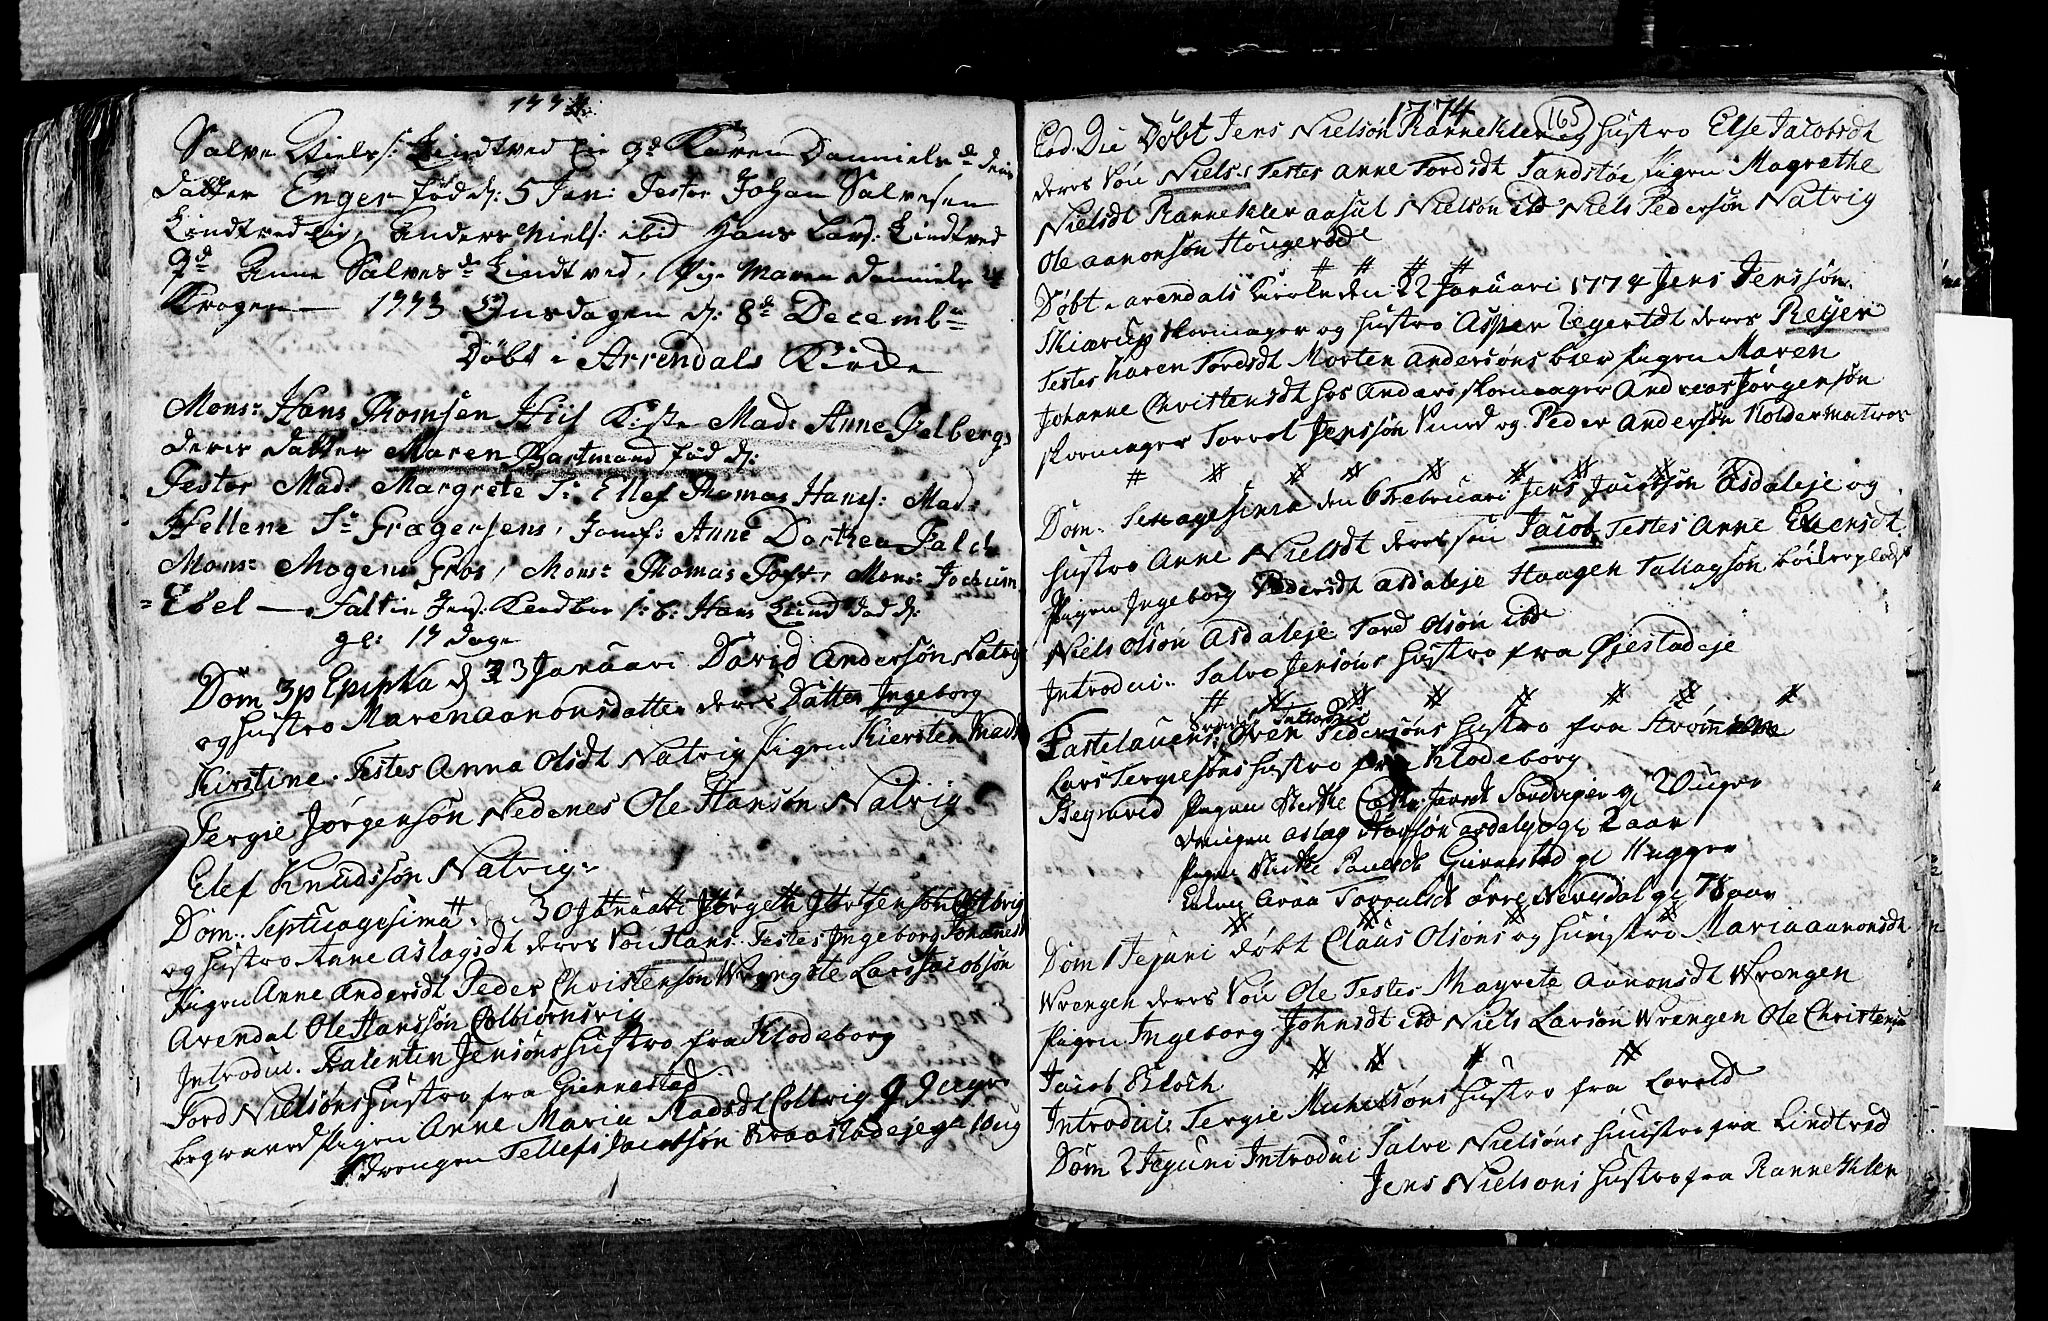 1774.
Salve Niels: Lindtved Eie qd Karen Danniels d deris
datter Enger fød d: 5 Jan: Testes Johan Salvesen
Lindtved Eie, Anders Niels: ibid Hans Lars: Lindtved
qd Anne Salves d Lindtved, Pig: Maren Danniels d
Kragen — 1773 Onsdagen d: 8de Decembr
Døbt i Arrendals Kirke
Mons: Hans Thomsen Huf Mad: Anne Felbergs
deris datter Maren Hartmand fød d:
Testes Mad: Margrete S: Ellef Thomas Hans: Mad:
Hellene Sr Grægersens, Jomf: Anne Dorthea Falck
Mons: Mogens Gros, Mons: Thomas Toft, Mons: Jochum
Ebel — Hans Lind død d:
gl: 17 dage
Dom 3 p Epipha d 23 Januari David Andersøn Natvig
og Hustro Maren aanonsdatter deres Datter Ingeborg
Kirstine. Testes Anna Olsdt Natvig Pigen Kiersten Madsdt
Tergie Jørgensøn Nedenes Ole Hansøn Natvig
Elef Knudssøn Natvig.
Dom. Septuagesima den 30 Januari Jørgen Jørgensøn Colbrig
og Hustro Anne Aslagsdt deres Søn Hans. Testes Ingeborg Johannesdt
Pigen Anne Andersdt Peder Christensøn Wrengste Lars Jacobsøn
Arendal Ole Hanssøn Colbiørnsvig
Introdui. Halenten Jensøns Hustro fra Klodeborg
Tord Nielsøns Hustro fra Giennestad
begraved Pigen Anne Maria Madsdt Colbrig g 9 uger
Drengen Tellef Jacobsøn Kraastadeje gl 10 ug
1774 165
Eod. Die Døbt Jens Nielsøn Rannekler og Hustro Else Jacobsdt
deres Søn Niels. Testes Anne Tordsdt Sandstøe Pigen Magrethe
Nielsdt Rannekler aasul Nielsøn ibd Niels Pedersøn Natvig
Ole aanonsøn Hougerød
Døbt i arendals Kirke den 22 Januari 1774 Jens Jenssøn
Skiærup skomager og Hustro Asper Zegertdt deres Reyer
Testes Karen Tordsdt Morten Andersøns Pigen Maren
Johanne Christensdt hos Anders skomager Andreas Jørgensøn
skomager Torvel Jenssøn Smed og Peder Andersøn Holder matros
Dom. Sexagesima den 6 Februari Jens Jacobsøn Asdaleje og
Hustro Anne Nielsdt deres søn Jacob. Testes Anne Evensdt
Pigen Ingeborg Pedersdt asdaleje Haagen Tallagsøn
Niels Olsøn Asdaleje Tord Olsøn ibd
Introdui. Salve Jensøns Hustro fra Øjestadeje
Introdui
Fastelauens Sven Pedersøns Hustro fra Strømmene
Lars Tergiesøns Hustro fra Klodeborg
Begraved Pigen Jensdt Sandvigen gl 20 uger
Drengen aslag asdalen gl 2 aar
Pigen Giennestad gl 11 uger
Enken Torvalsdt øvre Nevesdal gl 78 aar
Dom 1 Jejuni døbt Claus Olsøns og Hustro Maria aanonsdt
Wrengen deres Søn Ole Testes Magrete Aanonsdt Wrengen
Pigen Ingeborg Johnsdt ibd Niels Larsøn Wrengen Ole Christensøn
Jacob Kloch
Introdui: Tergie Michelsøns Hustro fra Lovold
Dom 2 Jejuni Introdui Salve Nielsøns Hustro fra Lindtved
Jens Nielsøns Hustro fra Rannekler